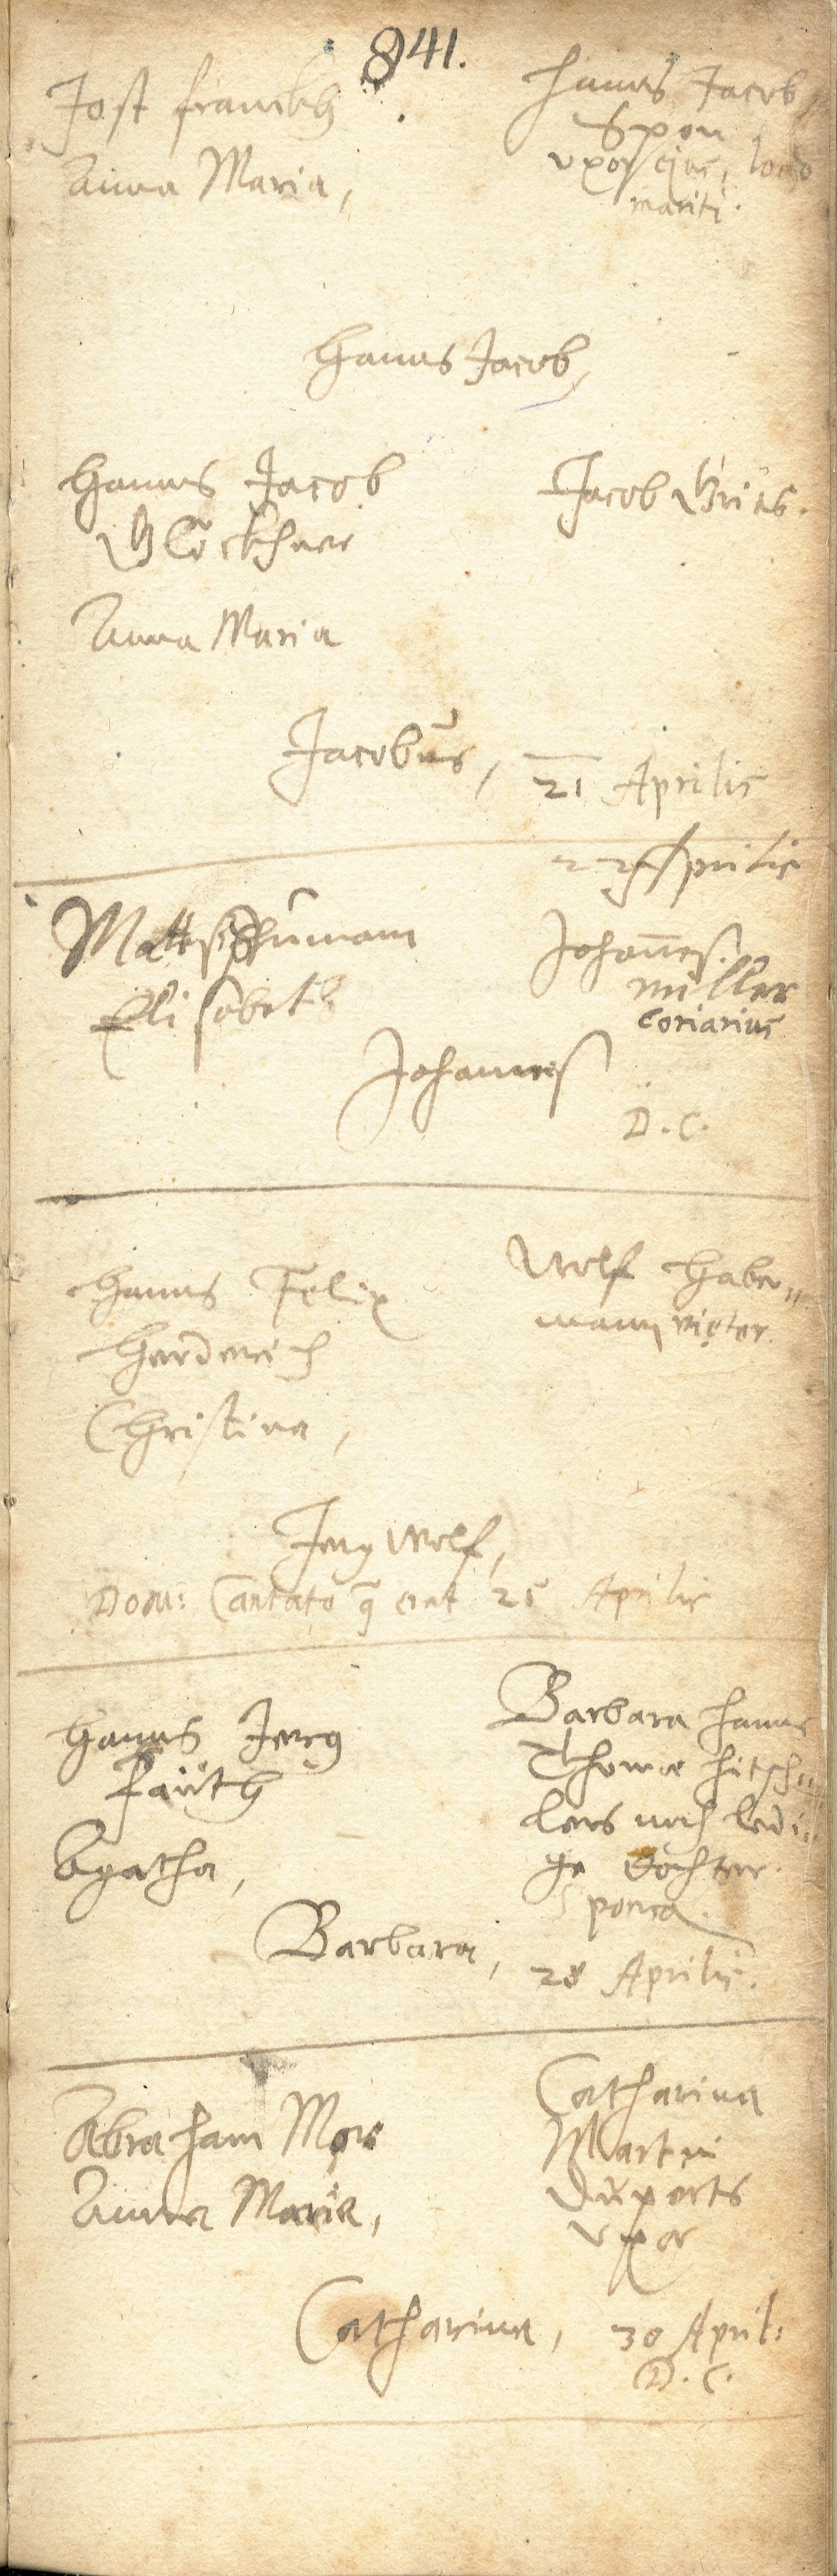 841.
Jost franckh
Anna Maria,
Hanns Jacob
Spon
uxor ejus, loco
mariti.
Hanns Jacob,
Hanns Jacob
Glöckhner
Anna Maria
Jacob
Jacobus,
21 Aprilis
Aprilis
Schumann
Elisabeth
Johannes
miller
coriarius
Johannes
D. C.
Hanns Felix
Herdereich
Christina,
Wolf Haber=
mann vietor
Jerg Wolf,
Dom: Cantate q̃ erat 25 Aprilis
Hanns Jerg
Fauth
Agatha,
Barbara Hanns
Thomæ hitsch=
lers noch ledi=
ge dochter.
Sponsa
Barbara,
28 Aprilis.
Abraham
Anna Maria,
Catharina
Martin
Duperts
uxor
Catharina,
30 April:
D. C.